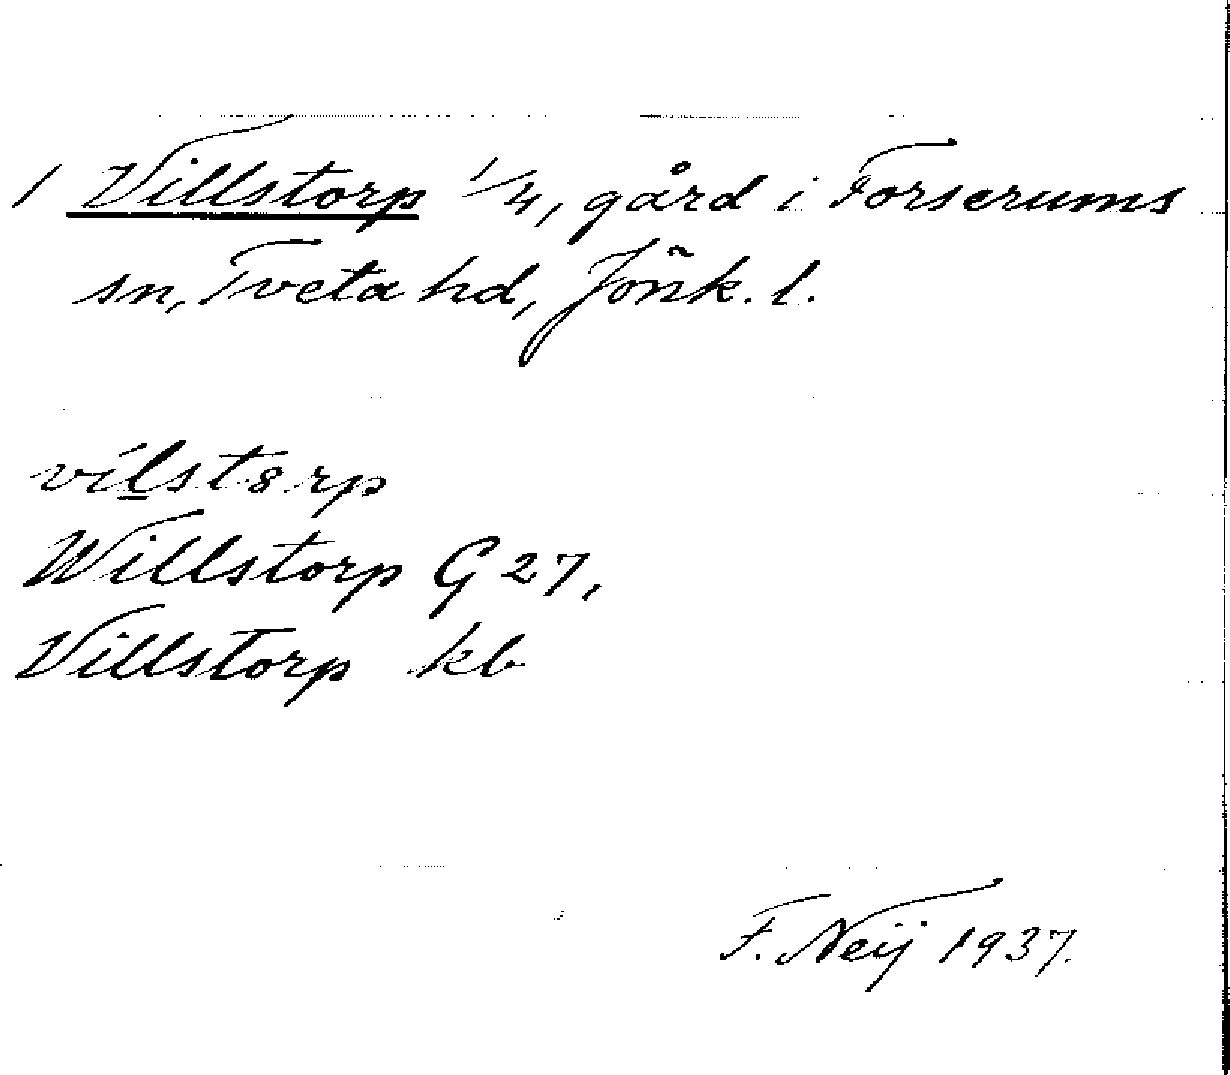 1 Villstorp 1/4, gård i Forserums
sn, Tveta hd, Jönk. l.
vílstərp
Willstorp G 27,
Villstorp kb
F. Neij 1937.